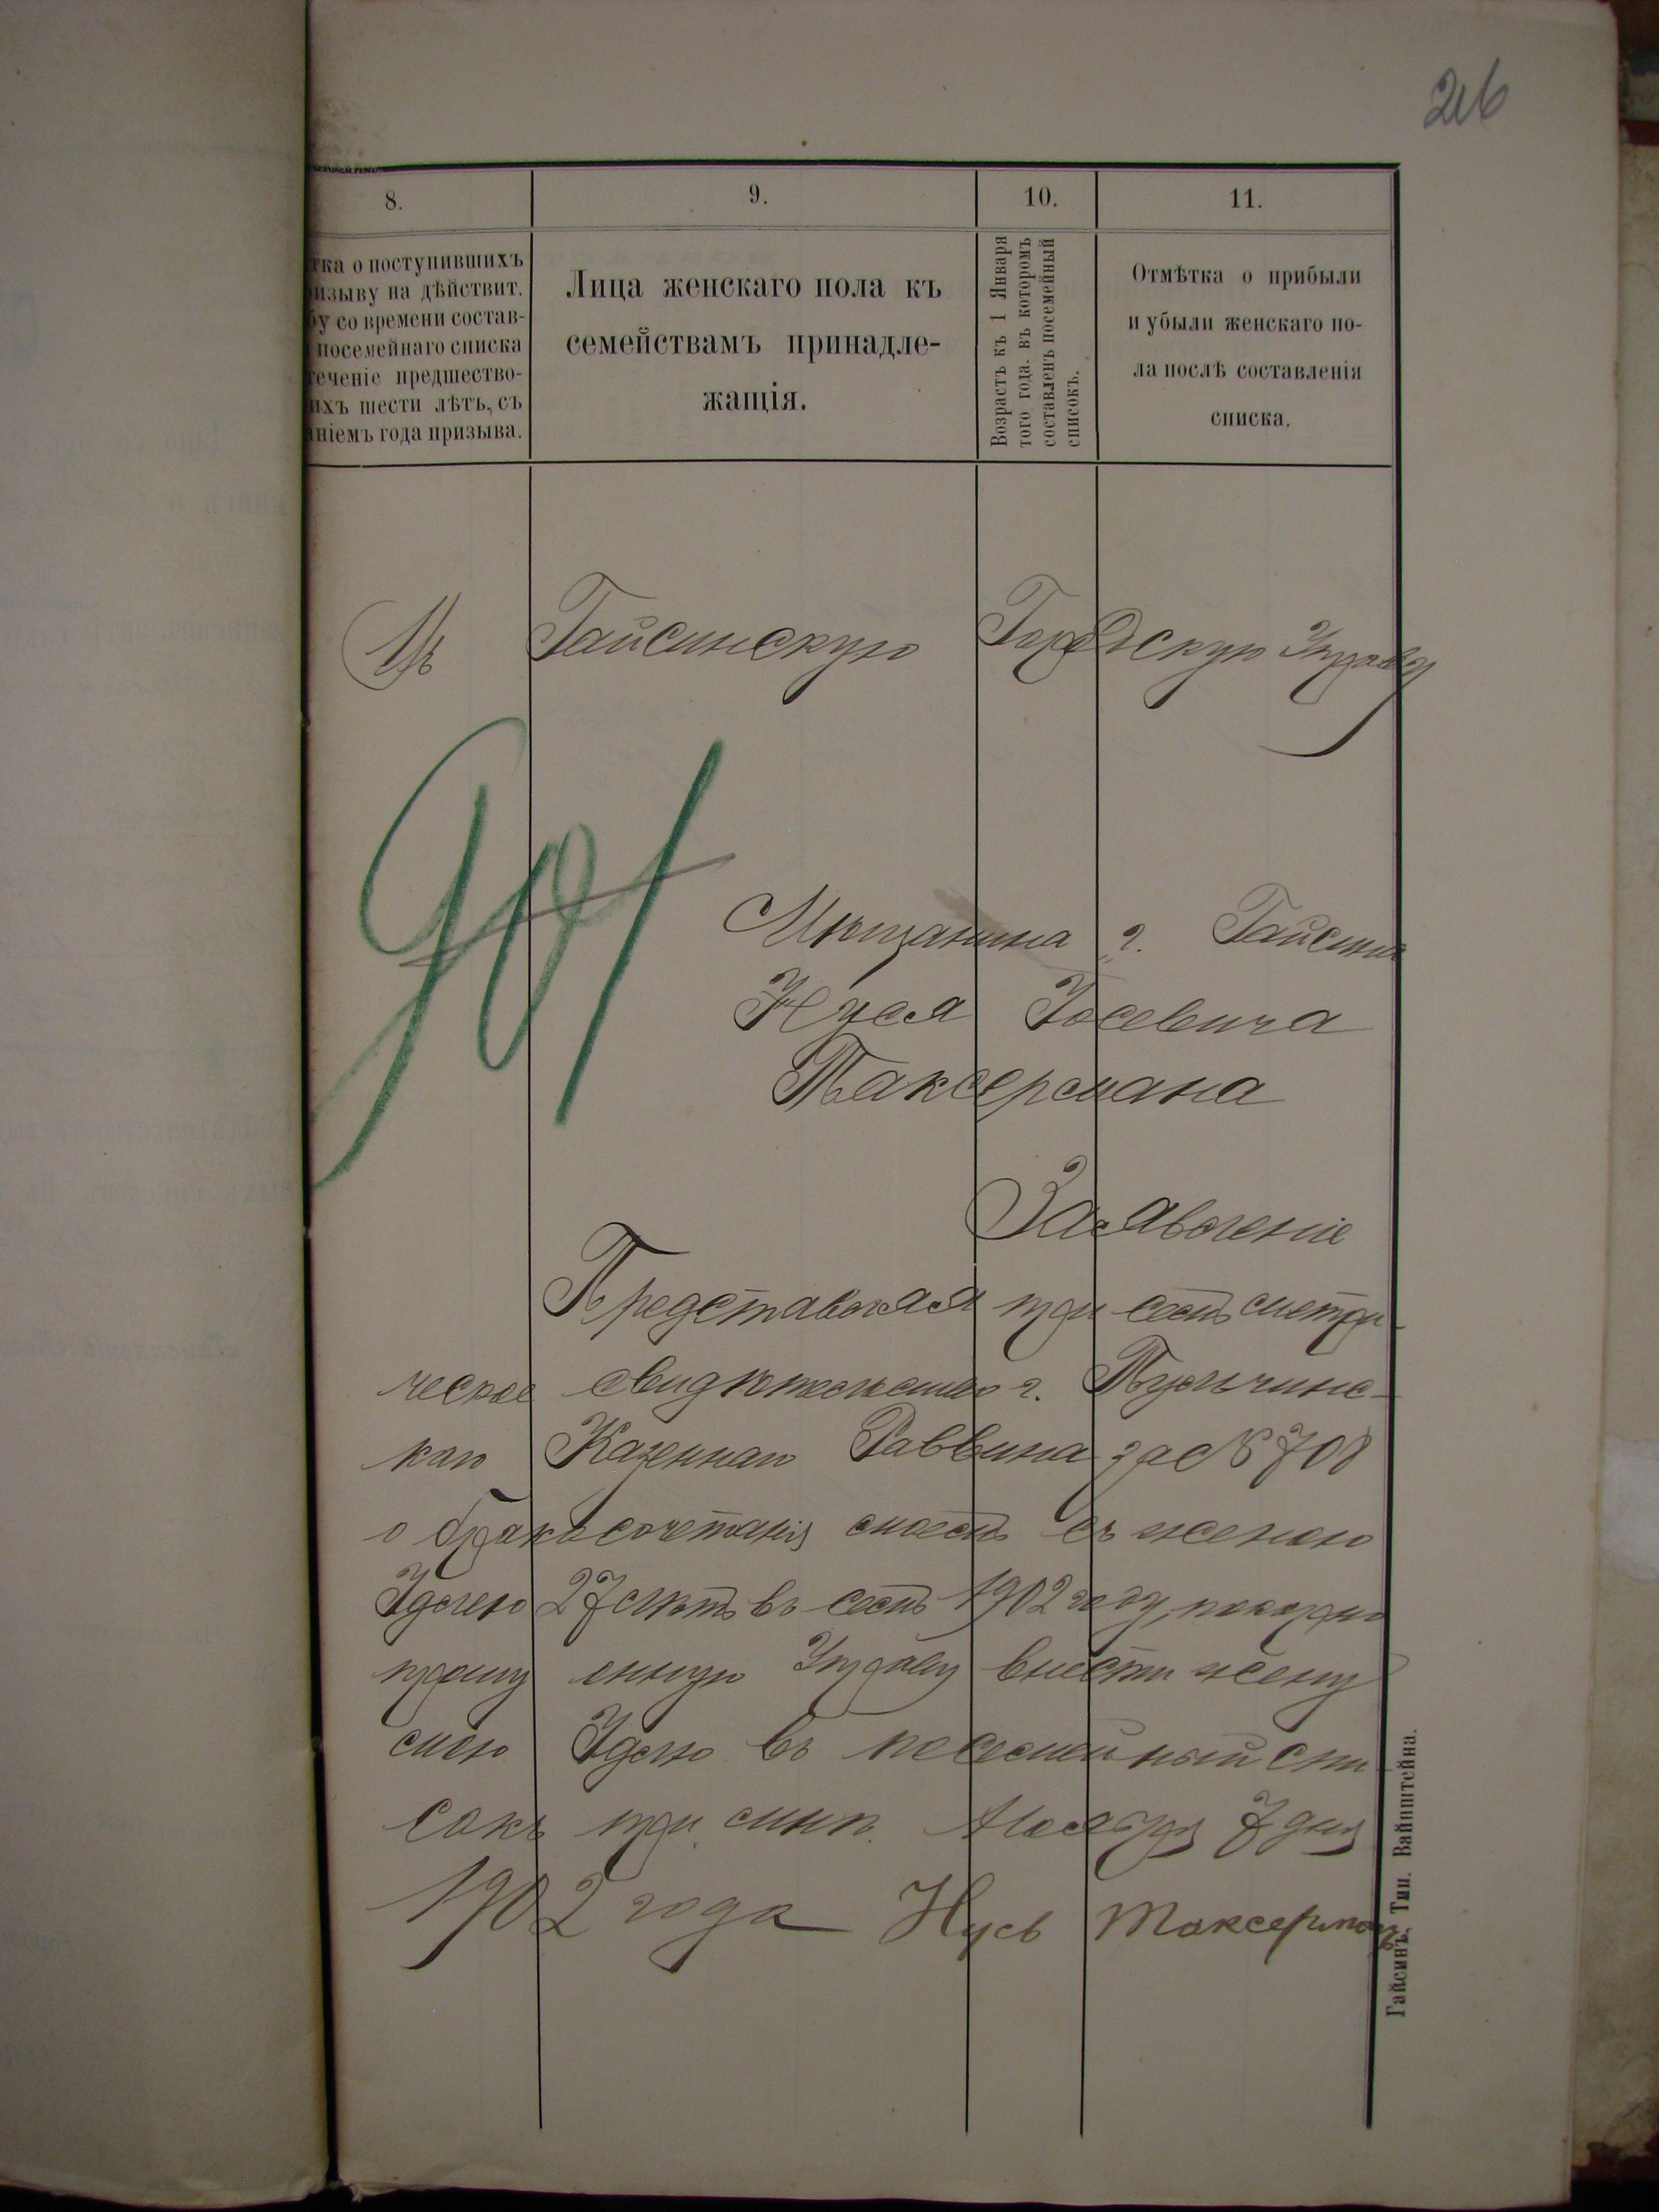 216
8.
9.
10.
11.
тка о поступившихъ
изыву на дѣйствит.
бу со времени состав-
посемейнаго списка
теченіе предшество-
ихъ шести лѣтъ, съ
аніемъ года призыва.
Лица женскаго пола къ
семействамъ принадле-
жащія.
Возрастъ къ 1 Января
того года. въ которомъ
составленъ посемейный
списокъ.
Отмѣтка о прибыли
и убыли женскаго по-
ла послѣ составленія
списка.
Въ Гайсинскую Городскую Управу
901
Мѣщанина г. Гайсина
Нуся Іосевича
Таксермана
Заявленіе
Представляя при семъ метри-
ческое свидѣтельство г. Тульчинс-
каго Казеннаго Раввина за № 708
о бракосочетанія моемъ съ женою
Удлею 27 лѣтъ въ семъ 1902 году, покорно
прошу оную Управу внести жену
мою Удлю въ посемейный спи-
сокъ при мнѣ. Ноября 7 дня
1902 года Нусь Таксерман
Гайсинъ, Тип. Вайнштейна.